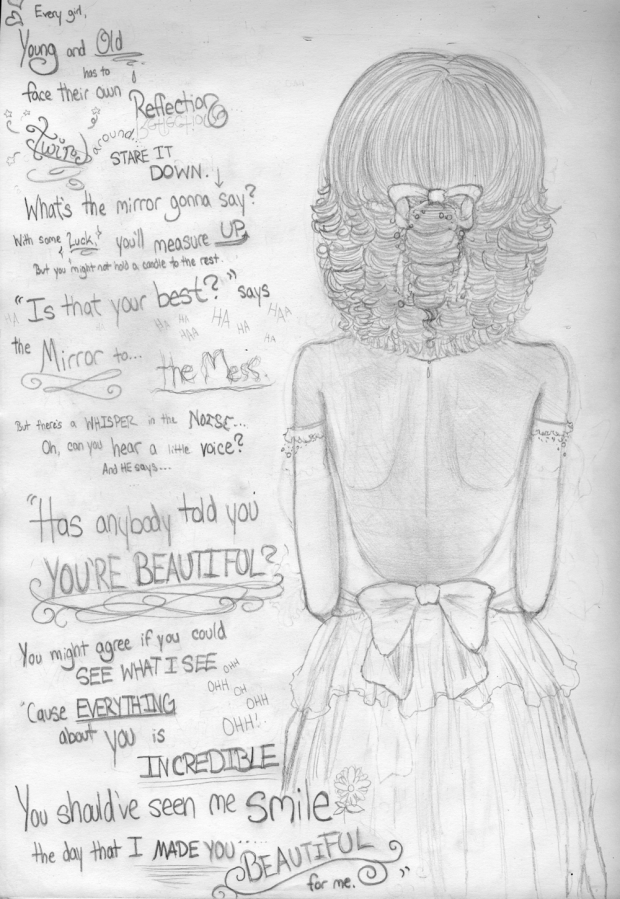 Every girl,
Young and Old
has to
face their own
Reflection
Reflection
Twirl around.
STARE IT
DOWN.
What's the mirror gonna say?
With some Luck, you'll measure UP
But you might not hold a candle to the rest.
"Is that your best?" says
HA HA HA HA HAA HAA HA HA
the Mirror to...
the Mess.
But there's a WHISPER in the NOISE...
Oh, can you hear a little voice?
And HE says...
"Has anybody told you
YOU'RE BEAUTIFUL?
You might agree if you could
SEE WHAT I SEE
OHH OHH OH OHH OHH!
'Cause EVERYTHING
about you is
INCREDIBLE
You should've seen me smile
the day that I MADE YOU.....
BEAUTIFUL
for me."